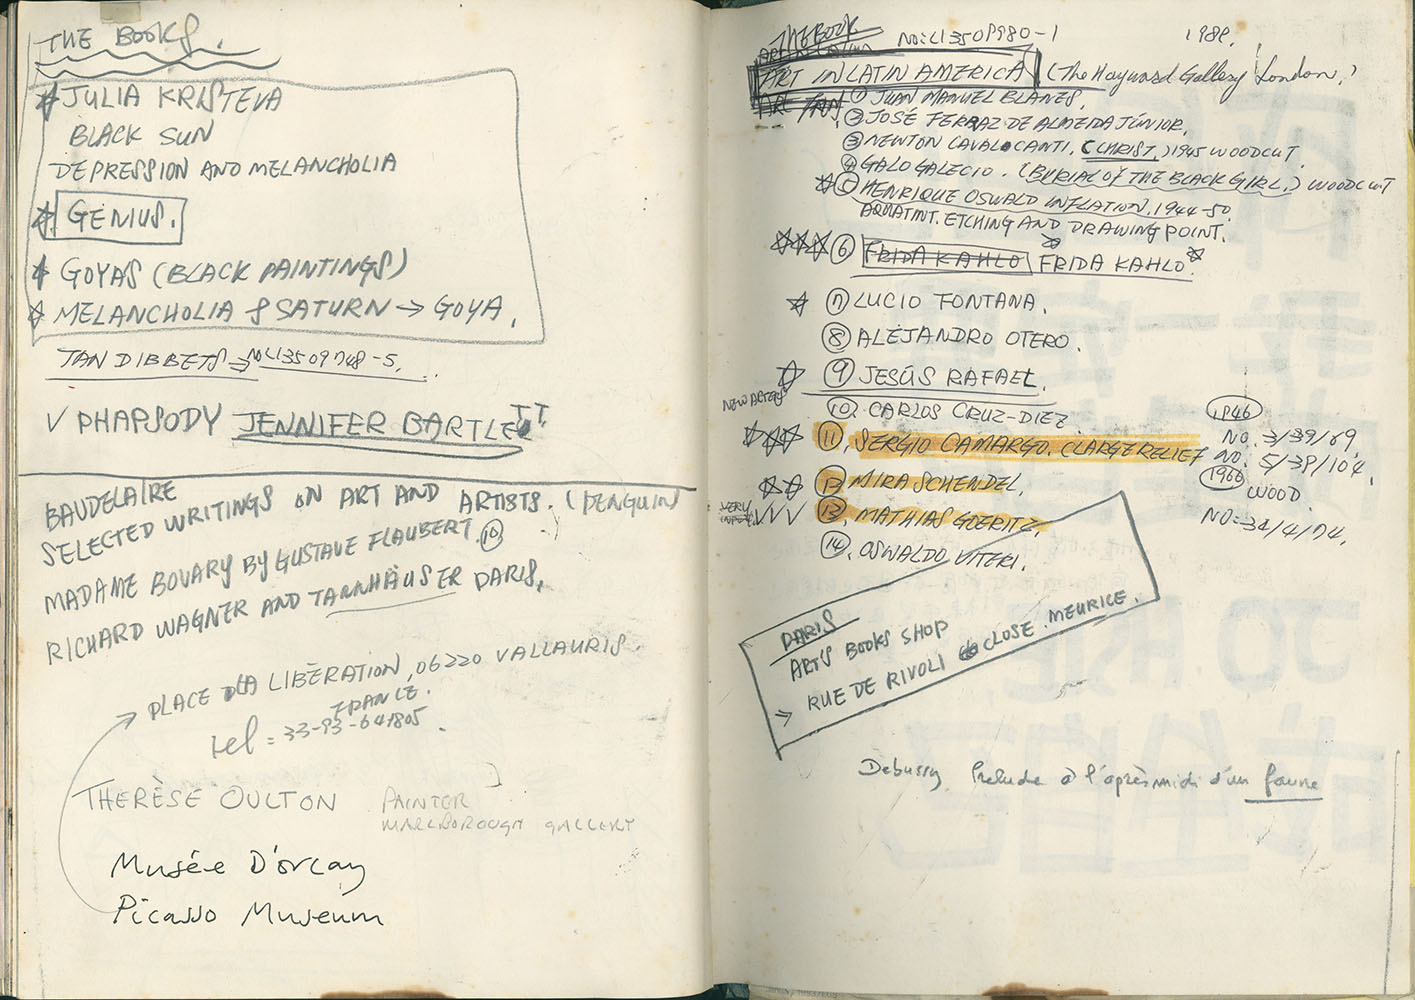 THE BOOKS.
JULIA KRISTEVA
BLACK SUN
DEPRESSION AND MELANCHOLIA
GENIUS.
GOYAS (BLACK PAINTINGS)
MELANCHOLIA & SATURN → GOYA.
JAN DIBBETS ⇒ NO: L13509748-5.
V RHAPSODY JENNIFER BARTLETT
BAUDELAIRE
SELECTED WRITINGS ON ART AND ARTISTS. (PENGUIN)
MADAME BOVARY BY GUSTAVE FLAUBERT. 10
RICHARD WAGNER AND TANNHÄUSER PARIS,
PLACE DLA LIBÈRATION, 06220 VALLAURIS.
FRANCE.
tel = 33-93-641805.
THERÈSE OULTON PAINTER
MARLBOROUGH GALLERY
Musée D'orcay
Picasso Museum
THE BOOK NO: L13508980-1 1989.
ART IN LATIN AMERICA (The Hayward Gallery London,)
① JUAN MANUEL BLANES,
② JOSÉ FERRAZ DE ALMEIDA JÚNIOR,
③ NEWTON CAVALOCANTI. (CHRIST,) 1945 WOODCUT.
④ GALO GALECIO. (BURIAL OF THE BLACK GIRL,) WOODCUT
⑤ HENRIQUE OSWALD INFLATION, 1944-50.
AQMATINT. ETCHING AND DRAWING POINT.
⑥ FRIDA KAHLO FRIDA KAHLO.
⑦ LUCIO FONTANA.
⑧ ALEJANDRO OTERO.
⑨ JESÚS RAFAEL.
NEW ARTERS
⑩ CARLOS CRUZ-DIEZ. 1946
⑪. SERGIO CAMARGO. (LARGE RELIEF NO. 3/39/69.
NO. 5/38/104.
⑫ MIRA SCHENDEL. 1966 WOOD
VERY
⑬. MATHIAS GOERITZ. NO: 34/4/74.
⑭. OSWALDO VITERI.
PARIS
ART'S BOOKS SHOP
RUE DE RIVOLI CLOSE MEURICE.
Debussy Prelude à l'après midi d'un faune